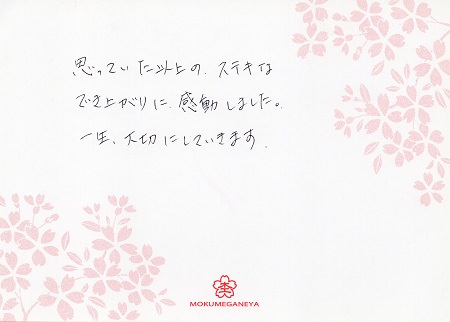 思っていた以上の、ステキな
でき上がりに、感動しました。
一生、大切にしていきます。
杢
MOKUMEGANEYA